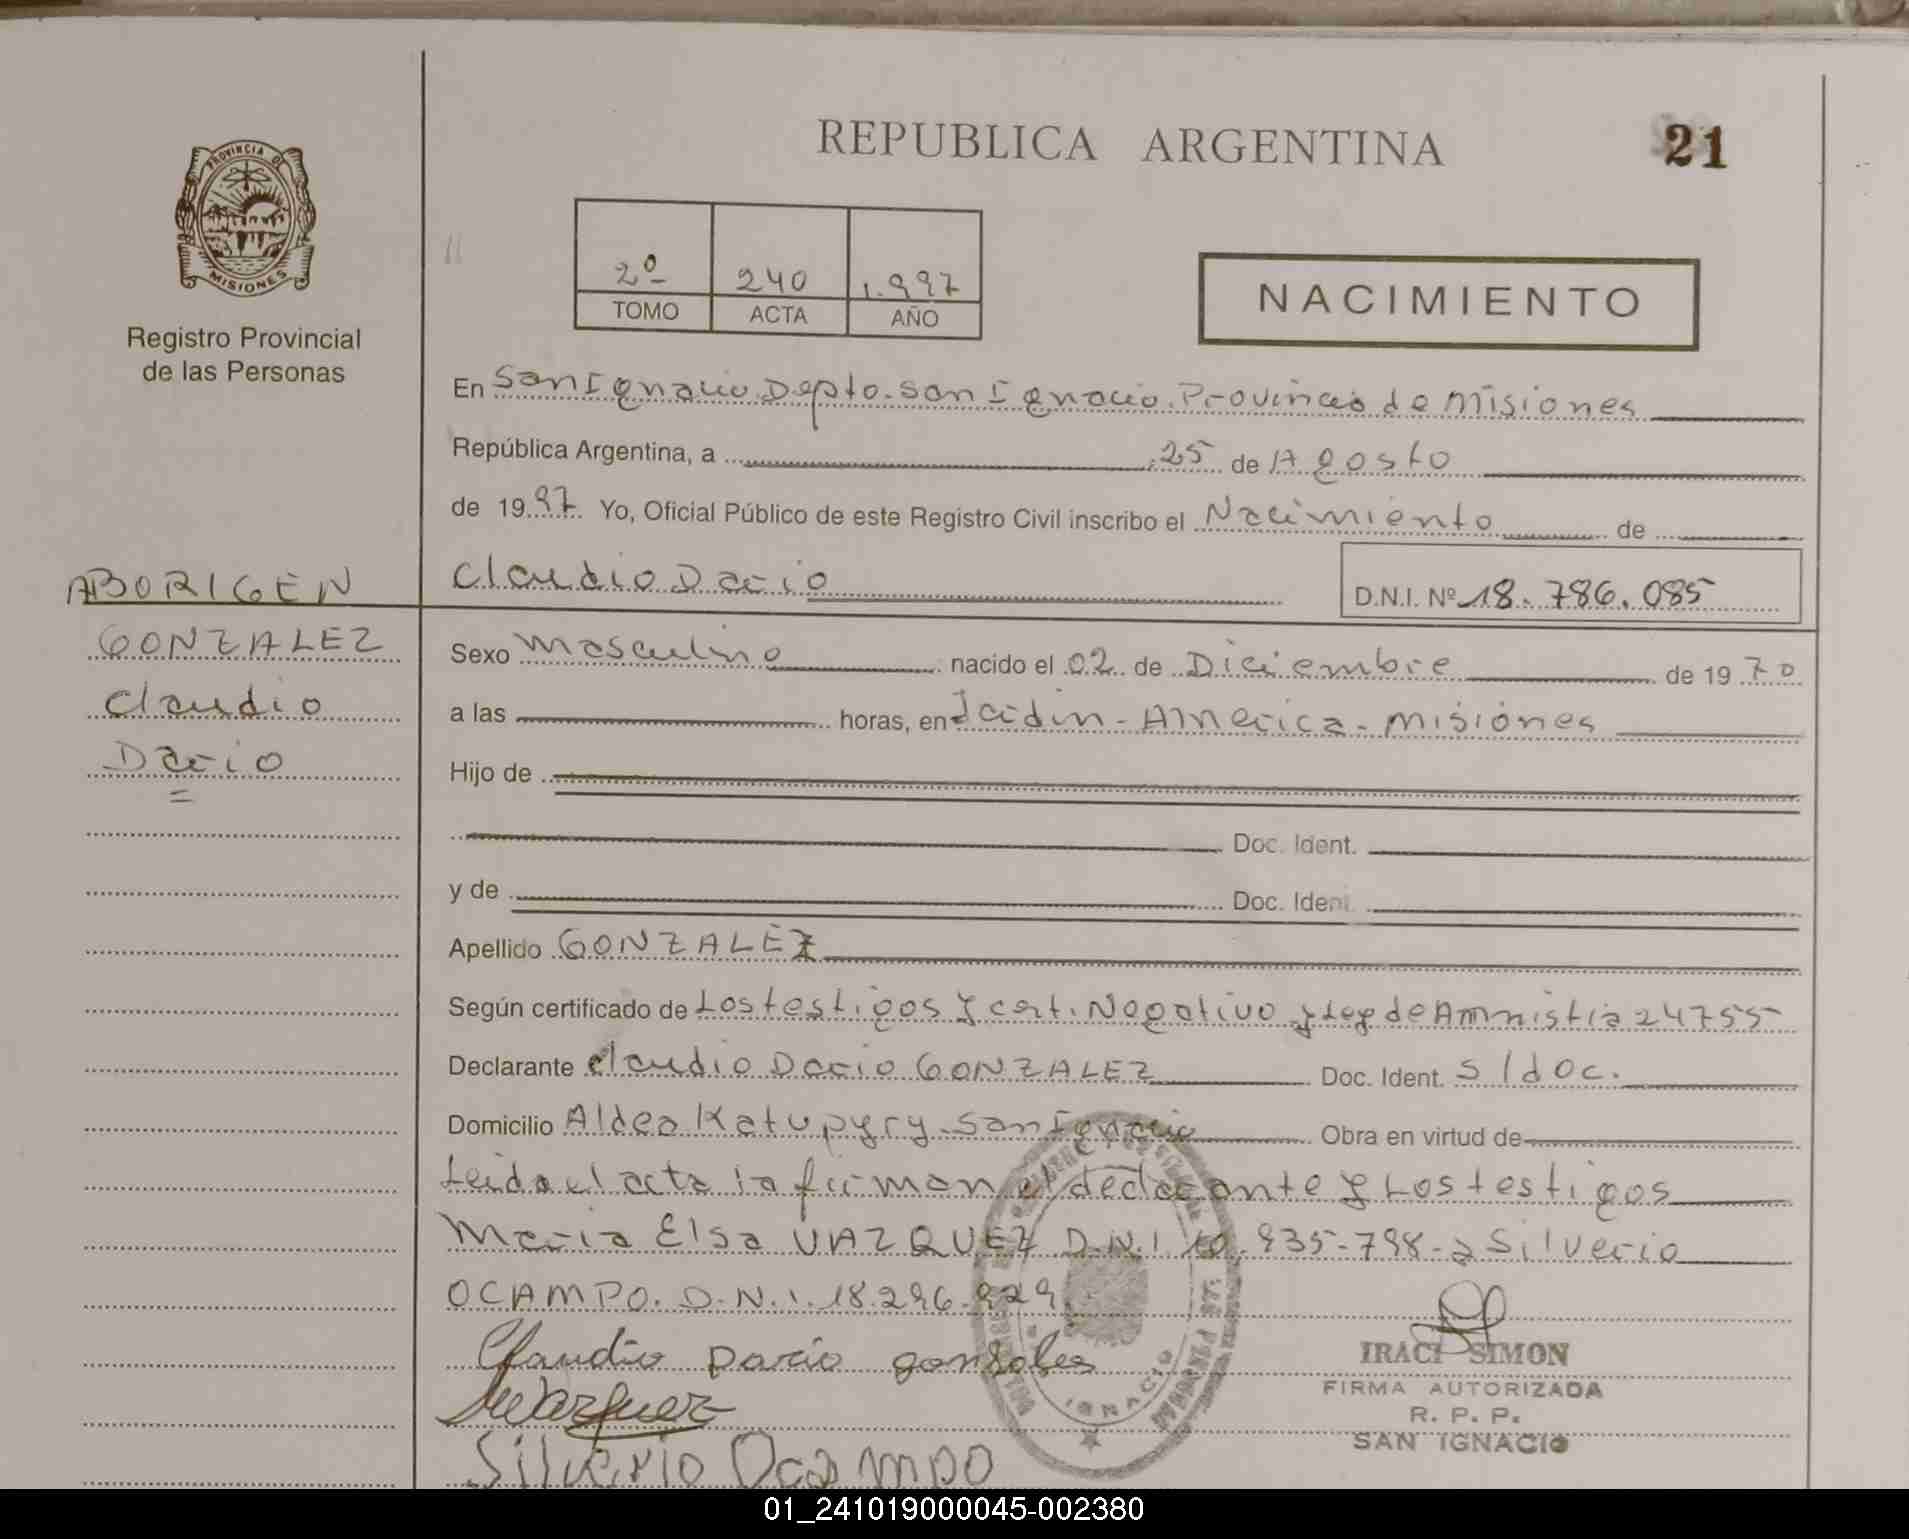 REPUBLICA ARGENTINA
21
PROVINCIA DE
MISIONES
Registro Provincial
de las Personas
2º 240 1.997
TOMO ACTA AÑO
NACIMIENTO
En San Ignacio. Depto. San Ignacio. Provincia de Misiones
República Argentina, a 25 de Agosto
de 1997. Yo, Oficial Público de este Registro Civil inscribo el Nacimiento de
Claudio Dario
D.N.I. Nº 18.786.085
ABORIGEN
GONZALEZ
Claudio
Dario
Sexo Masculino nacido el 02 de Diciembre de 1970
a las horas, en Jardin-America-Misiones
Hijo de
Doc. Ident.
y de Doc. Ident.
Apellido GONZALEZ
Según certificado de Los testigos y cert. Negativo y Ley de Amnistia 24755
Declarante Claudio Dario GONZALEZ Doc. Ident. S/doc.
Domicilio Aldea Katupyry-San Ignacio Obra en virtud de
Leida el acta la firman el declarante y Los testigos
Maria Elsa VAZQUEZ D.N.I 10.935-798-y Silverio
OCAMPO. D.N.I. 18.296.929.
Claudio Dario gonzales
MEVazquez
Silverio Ocampo
IGNACIO
IRACI SIMON
FIRMA AUTORIZADA
R. P. P.
SAN IGNACIO
01_241019000045-002380